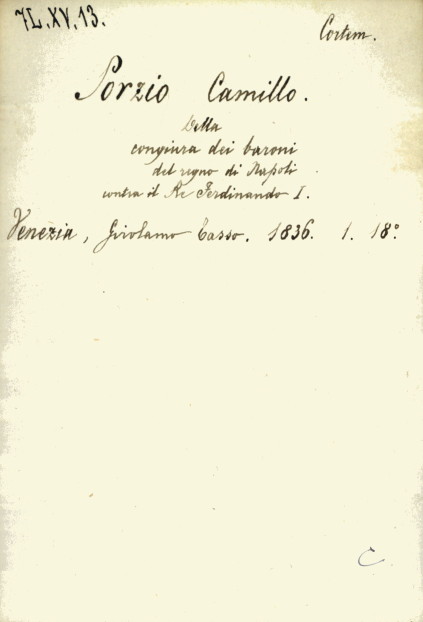 7L.XV.13.
Cortem.
Porzio Camillo.
Della
congiura dei baroni
del regno di Napoli
contra il Re Ferdinando I.
Venezia, Girolamo Tasso. 1836. 1. 18°
C